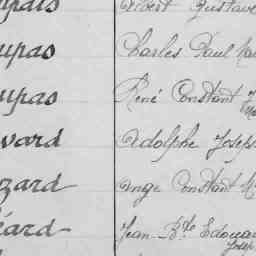 upais Albert Gustave
upas Charles Paul
upas René Constant
vard Adolphe Joseph
zard Ange Constant
éard Jean-Bte Edouard
Joseph